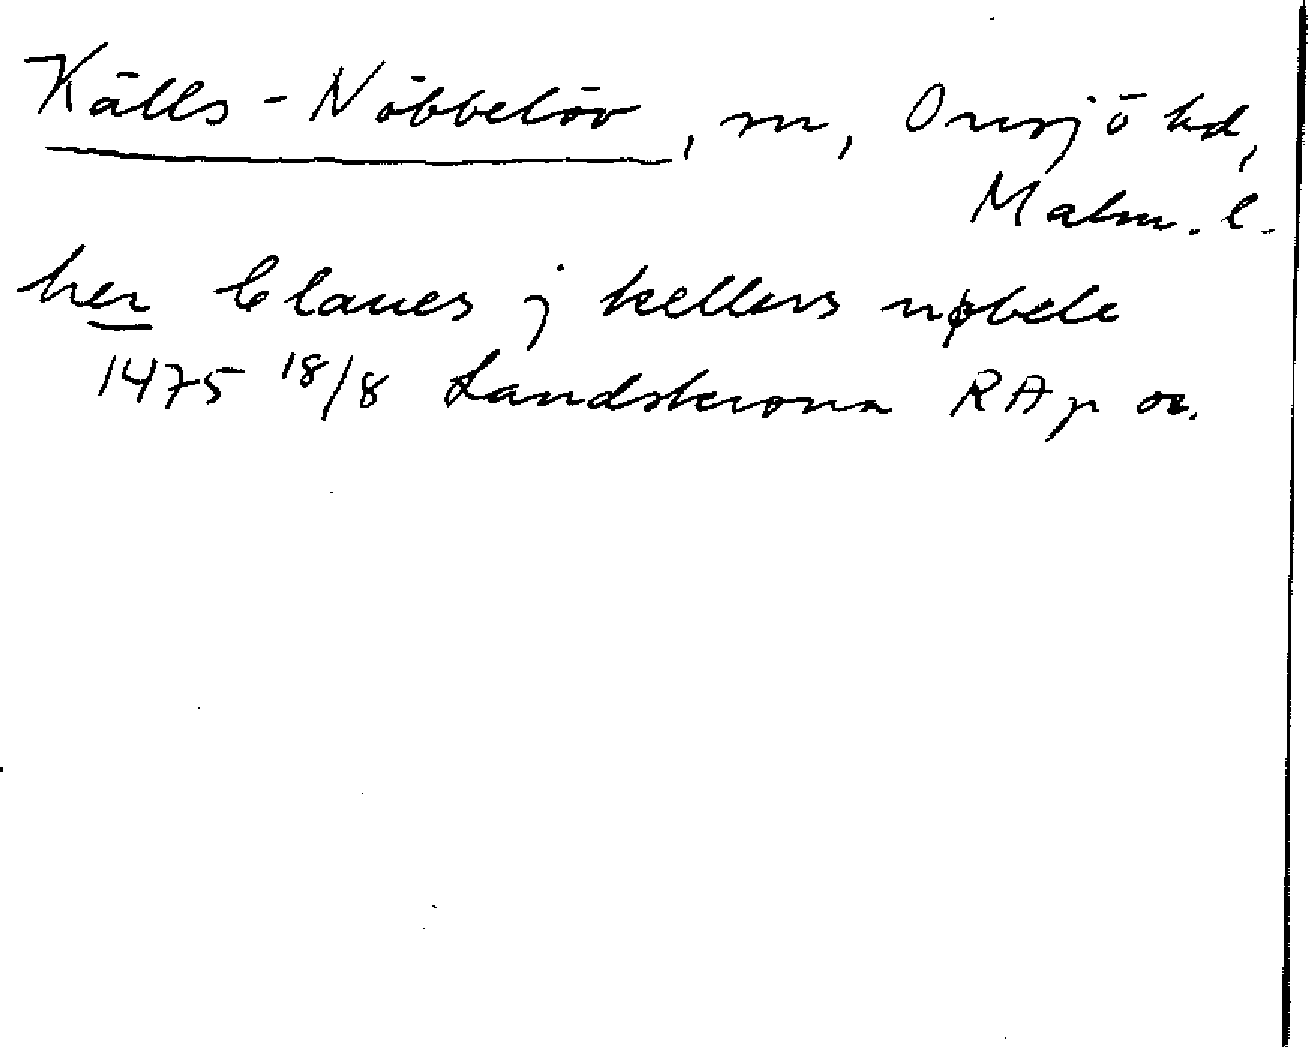 Källs-Nöbbelöv, sn, Onsjö hd,
Malm. l.
her Claues j kellers nøbele
1475 18/8 Landskrona RAp or.